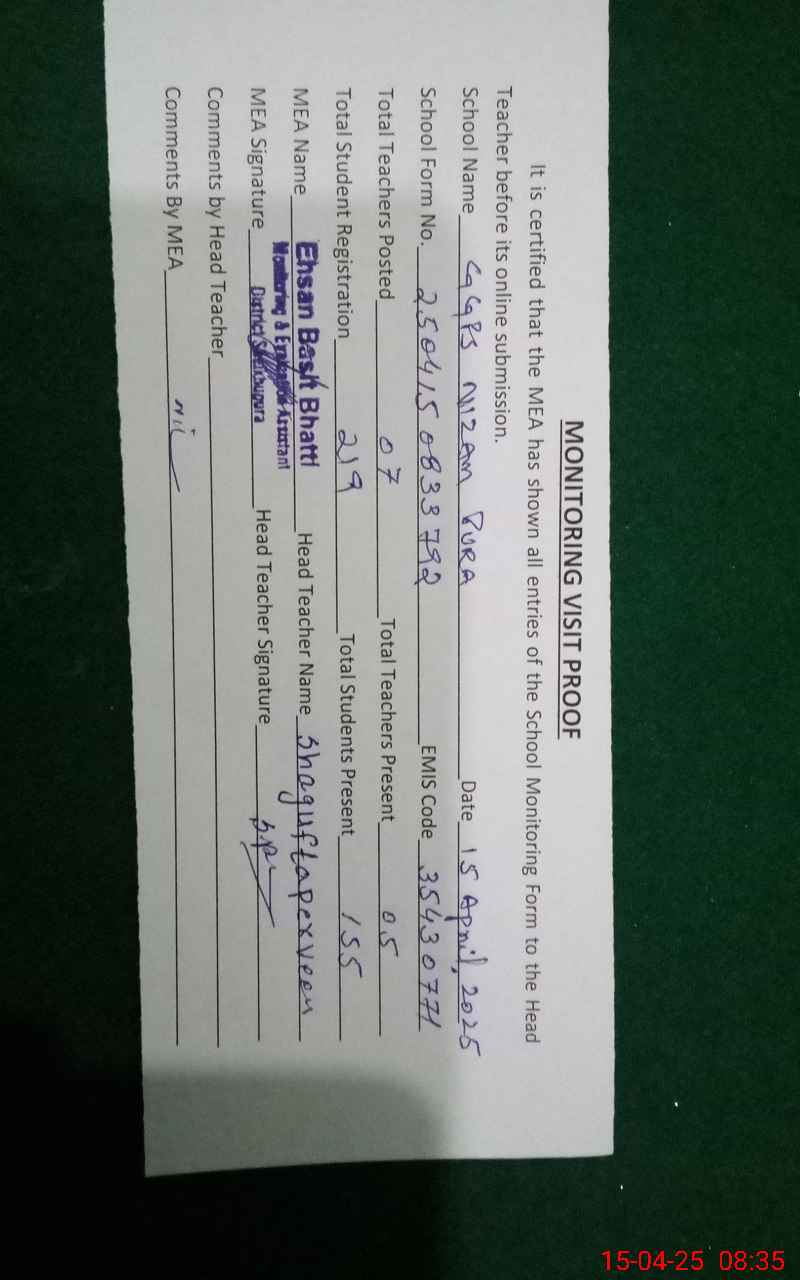 MONITORING VISIT PROOF
It is certified that the MEA has shown all entries of the School Monitoring Form to the Head
Teacher before its online submission.
School Name GGPS NIZAM PURA Date 15 April, 2025
School Form No. 250415 0833792 EMIS Code 35430771
Total Teachers Posted 07 Total Teachers Present 05
Total Student Registration 219 Total Students Present 155
MEA Name Ehsan Basit Bhatti Head Teacher Name Shagufta perveen
Monitoring & Evaluation Assistant
MEA Signature District Sheikhupura Head Teacher Signature
Comments by Head Teacher
Comments By MEA Nil
15-04-25 08:35